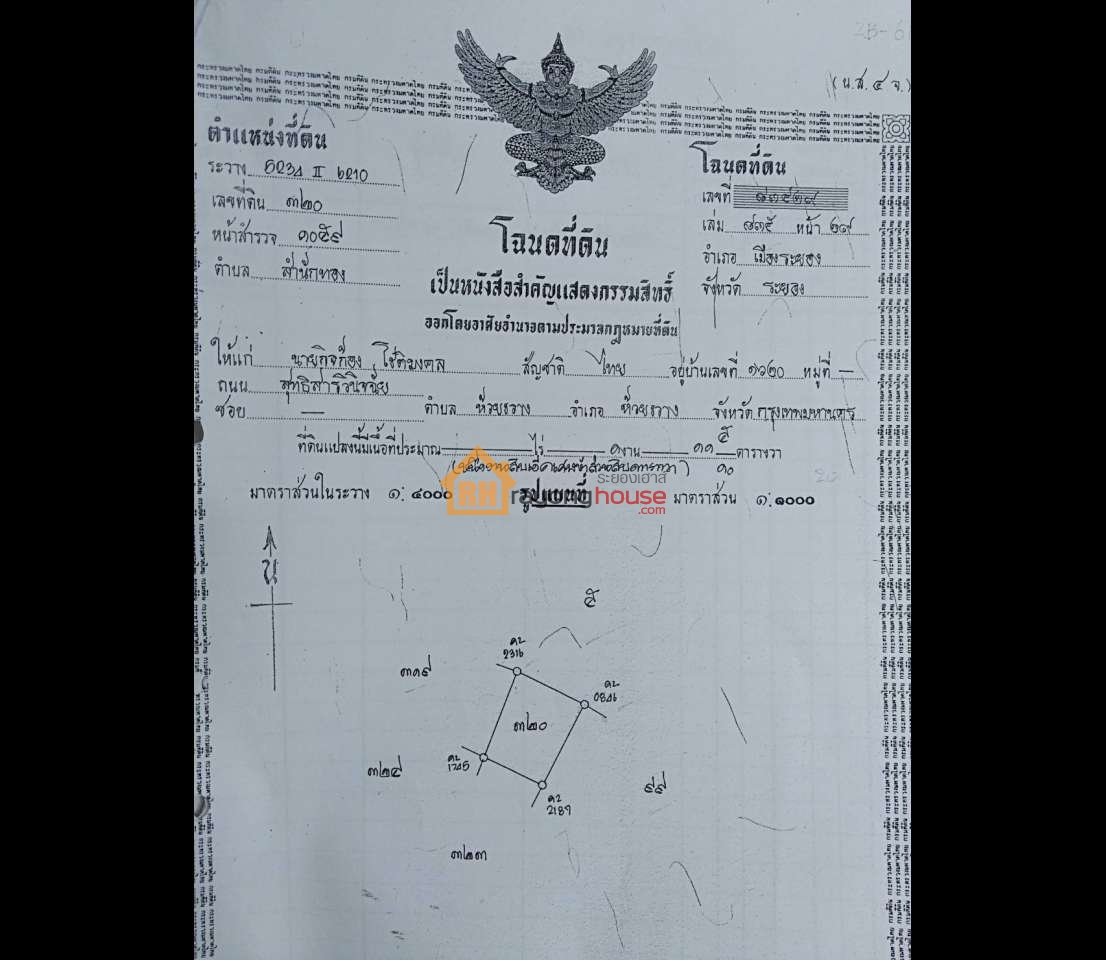 (น.ส. ๔ จ.)
ตำแหน่งที่ดิน
ระวาง 5234 II 6210
เลขที่ดิน ๓๒๐
หน้าสำรวจ ๑๐๕๙
ตำบล สำนักทอง
โฉนดที่ดิน
เลขที่
เล่ม ๗๓๕ หน้า ๒๗
อำเภอ เมืองระยอง
จังหวัด ระยอง
โฉนดที่ดิน
เป็นหนังสือสำคัญแสดงกรรมสิทธิ์
ออกโดยอาศัยอำนาจตามประมวลกฎหมายที่ดิน
ให้แก่ นายกิจก้อง โชติมงคล สัญชาติ ไทย อยู่บ้านเลขที่ ๑๖๒๐ หมู่ที่ —
ถนน สุทธิสารวินิจฉัย
ซอย — ตำบล ห้วยขวาง อำเภอ ห้วยขวาง จังหวัด กรุงเทพมหานคร
ที่ดินแปลงนี้มีเนื้อที่ประมาณ — ไร่ ๑ งาน ๑๑ ๕/๑๐ ตารางวา
(หนึ่งงานสิบเอ็ดเศษห้าส่วนสิบตารางวา)
มาตราส่วนในระวาง ๑ : ๔๐๐๐ รูปแผนที่ มาตราส่วน ๑ : ๑๐๐๐
RH ระยองเฮาส์
rayonghouse
.com
น
๕
ค2
2316
๓๑๙
ค2
0846
๓๒๐
ค2
1745
๓๒๔
ค2
2187
๙๙
๓๒๓